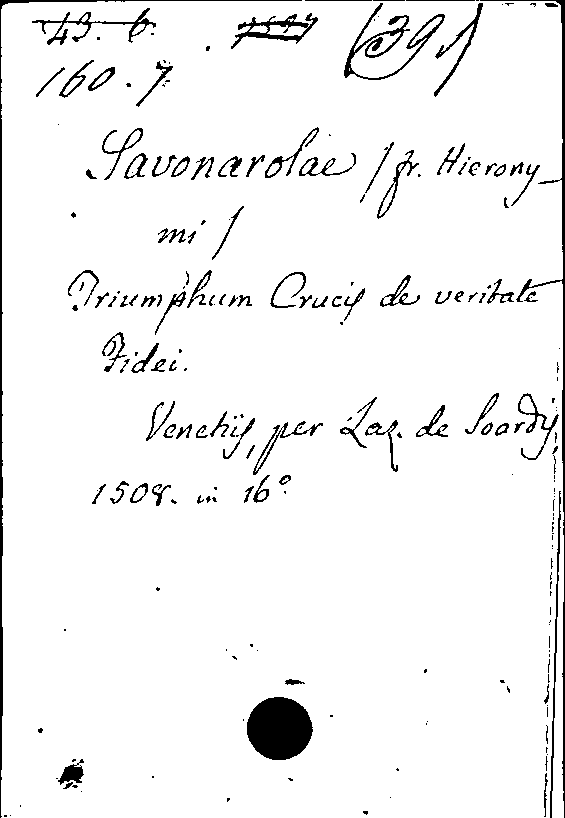 43. 6.
(39.)
160. 7
Savonarolae / fr. Hierony-
mi /
Triumphum Crucis de veritate
Fidei.
Venetijs, per Laz. de Soardis,
1508. in 16°.